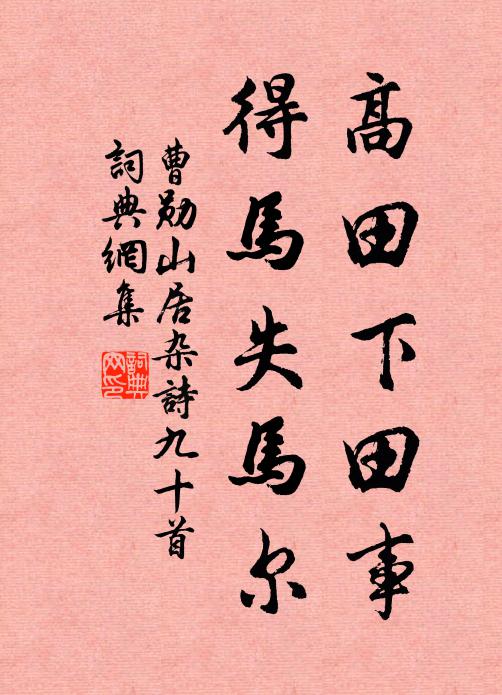 高田下田事
得馬失馬尔
曹勋山居杂詩九十首
詞典網集
詞典
网印